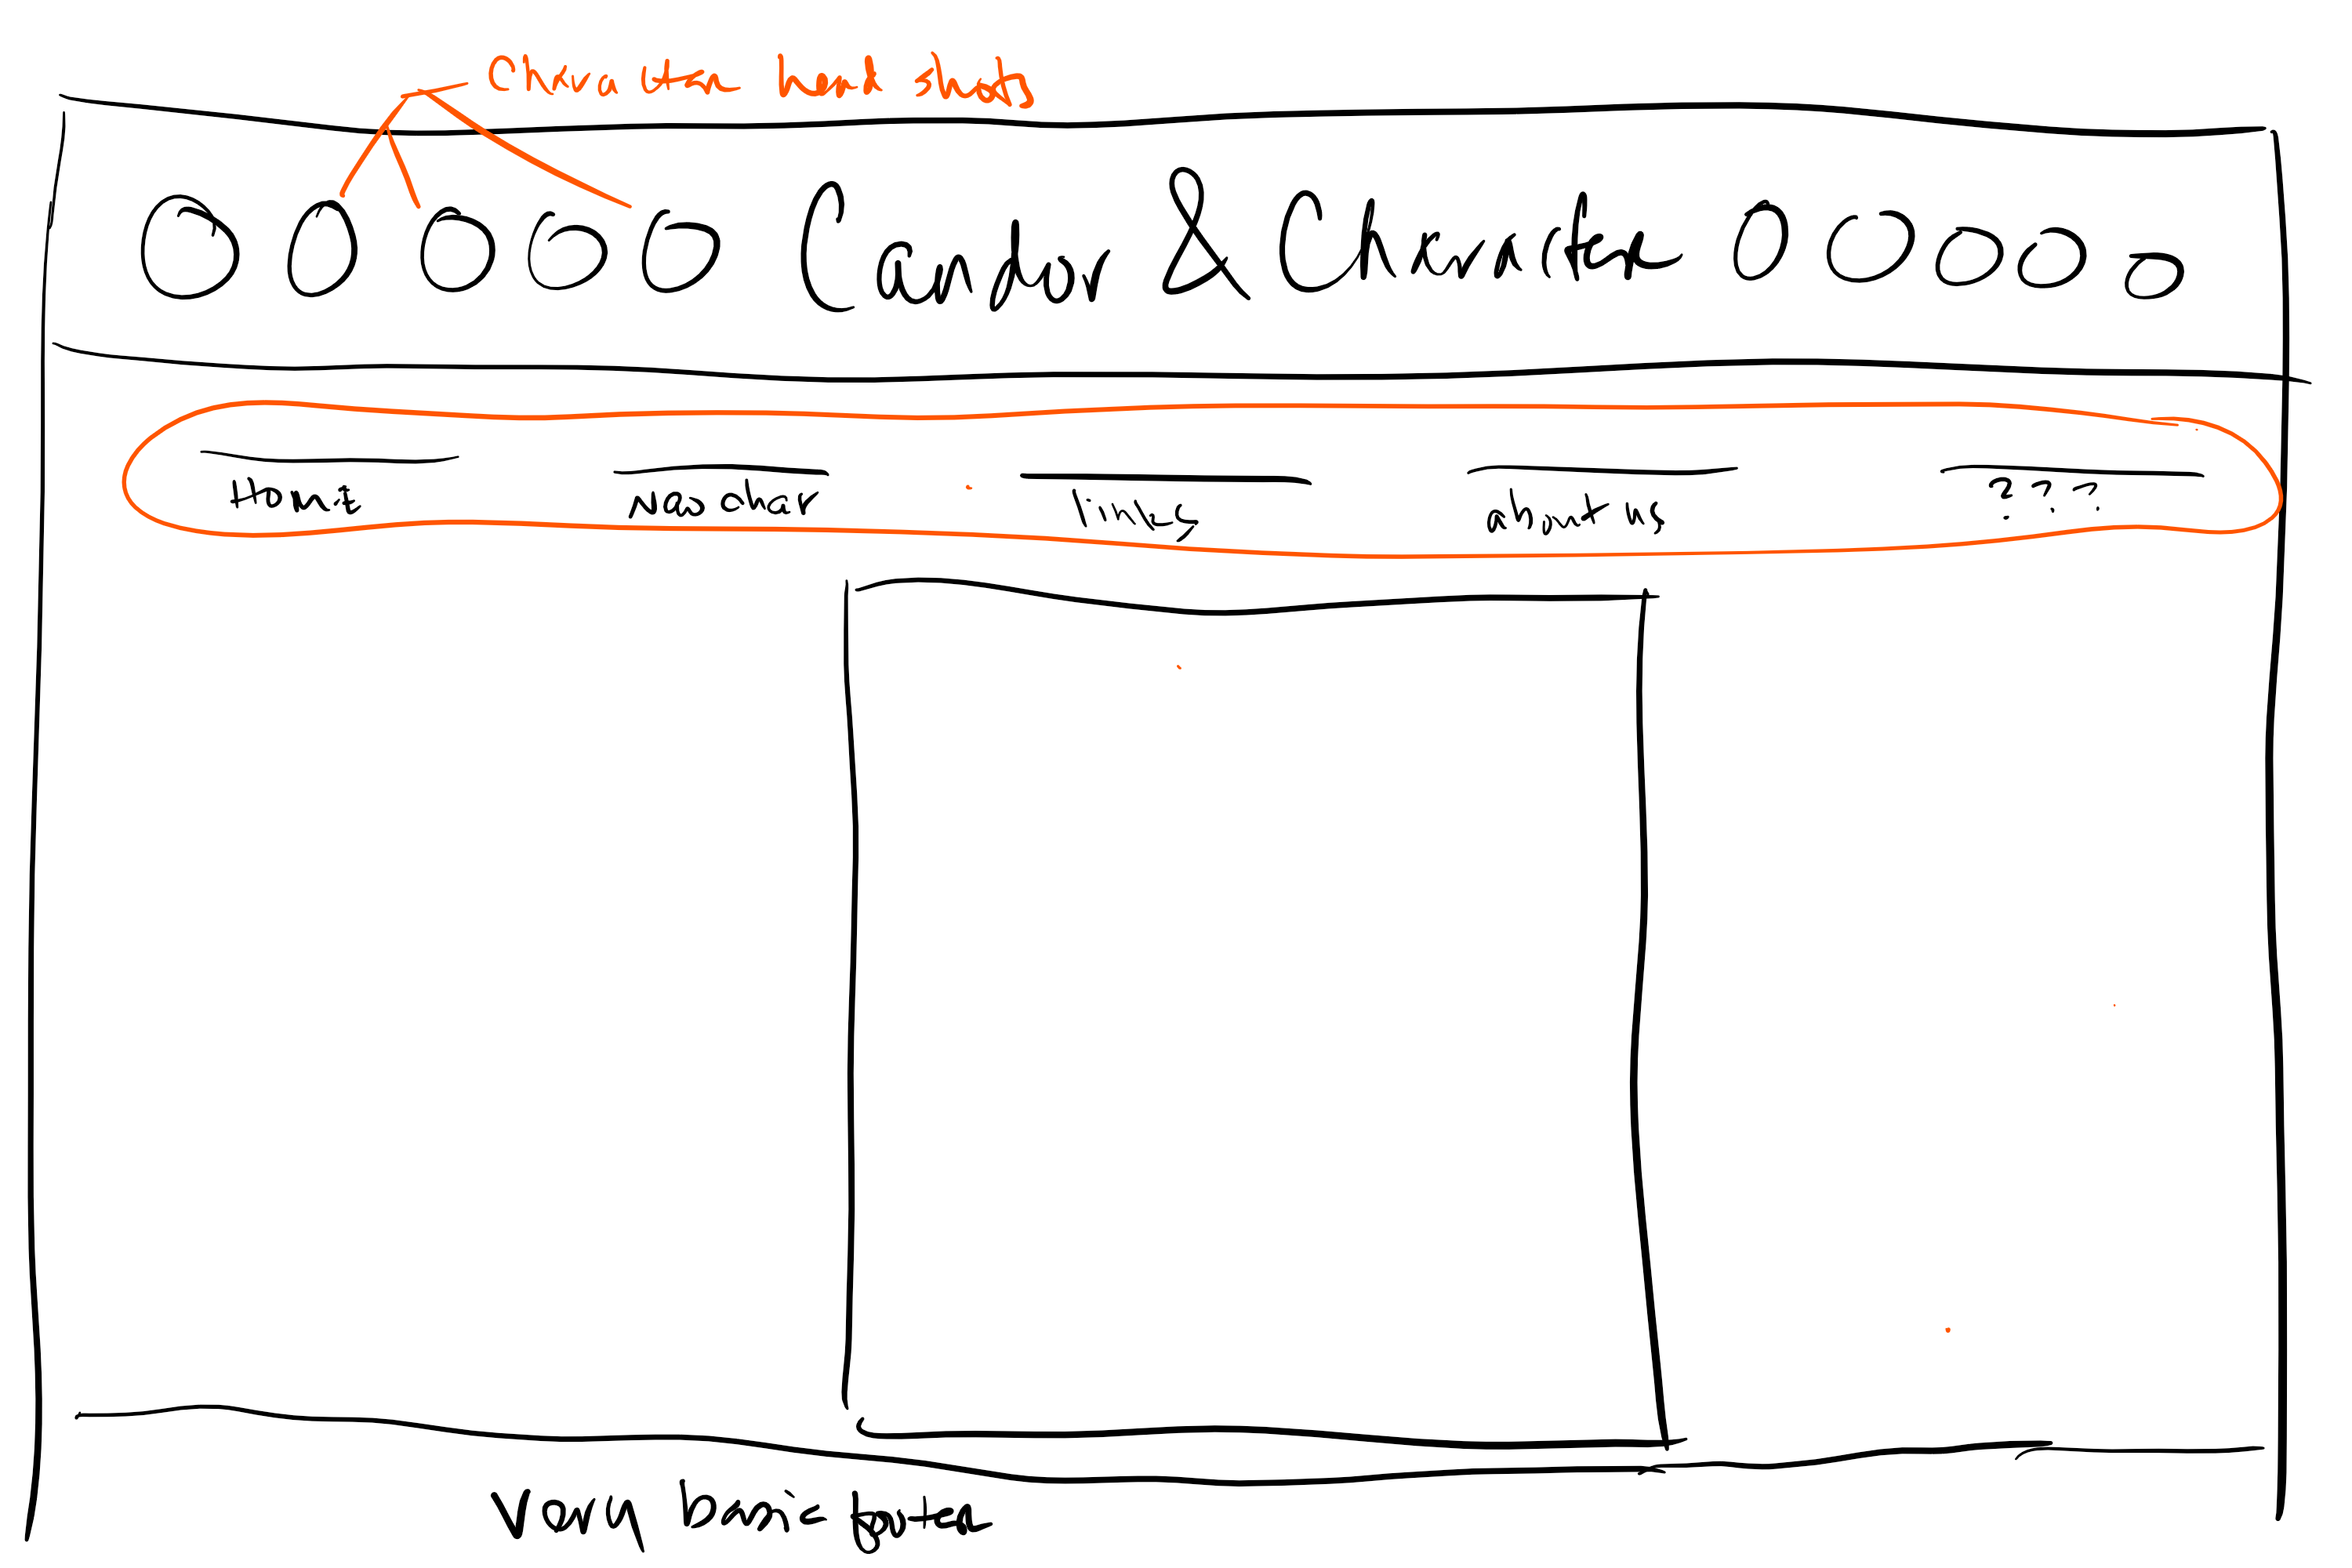 Character head shots
Candor & Character
Home
links
about us
? ? ?
very basic footer